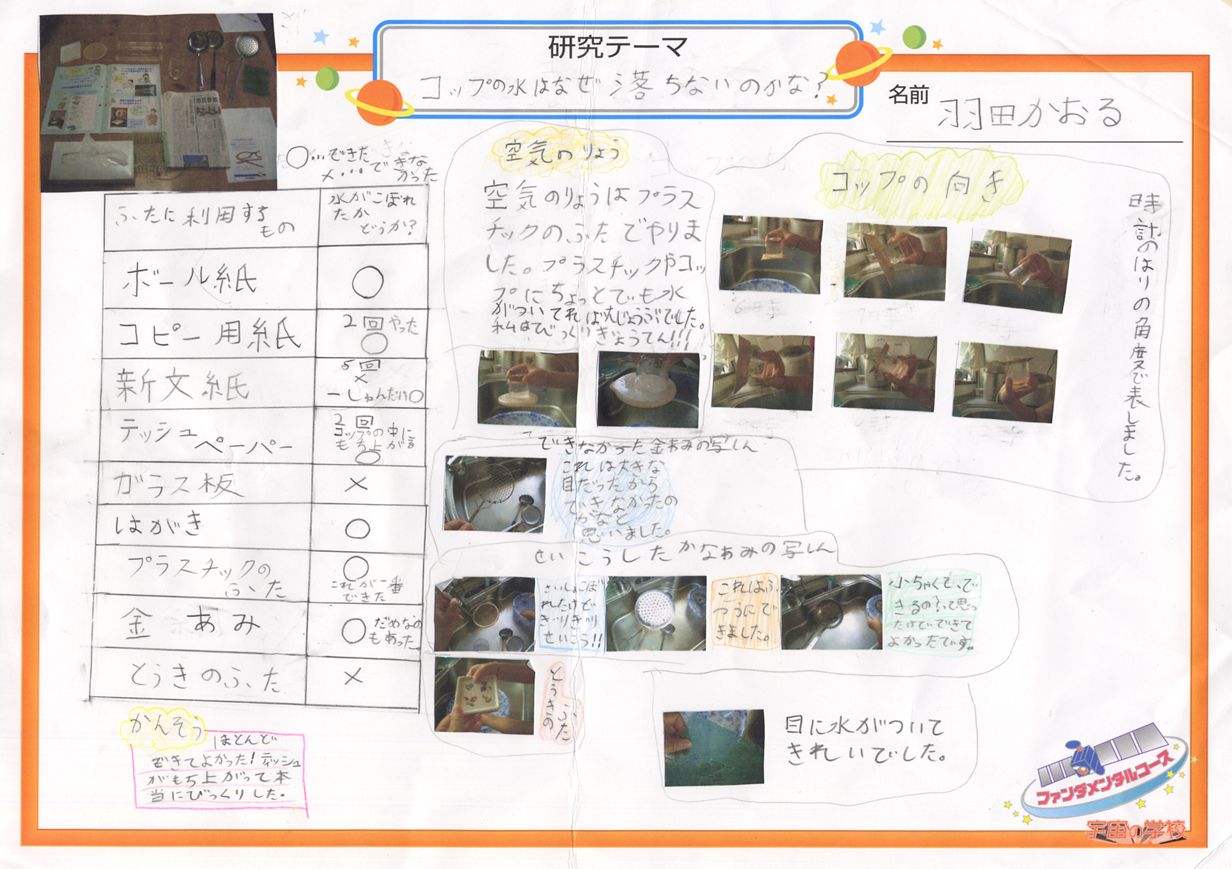 研究テーマ
コップの水はなぜ落ちないのかな?
名前
羽田かおる
○…できた
×…できなかった
ふたに利用するもの
水がこぼれたかどうか?
ボール紙
○
コピー用紙
2回やった
○
新文紙
5回
×
一しゅんだけ○
テッシュペーパー
2回
コップの中に
もち上がる
○
ガラス板
×
はがき
○
プラスチックのふた
○
これが一番
できた
金あみ
○
だめなの
もあった
とうきのふた
×
かんそう
ほとんど
できてよかった!ティッシュ
がもち上がって本
当にびっくりした。
空気のりょう
空気のりょうはプラス
チックのふたでやりま
した。プラスチックやコッ
プにちょっとでも水
がついてれば大じょうぶでした。
私はびっくりぎょうてん!!!
コップの向き
時計のはりの角度で表しました。
できなかった金あみの写しん
これは大きな
目だったから
できなかたの
かなと
思いました。
せいこうしたかなあみの写しん
さいしょこぼ
れたけど
ぎりぎり
せいこう!!
これはふ
つうにで
きました。
小ちゃくて、で
きるの?って思っ
たけどできて
よかったです。
とうきの
ふた
目に水がついて
きれいでした。
ファンダメンタルコース
宇宙の学校